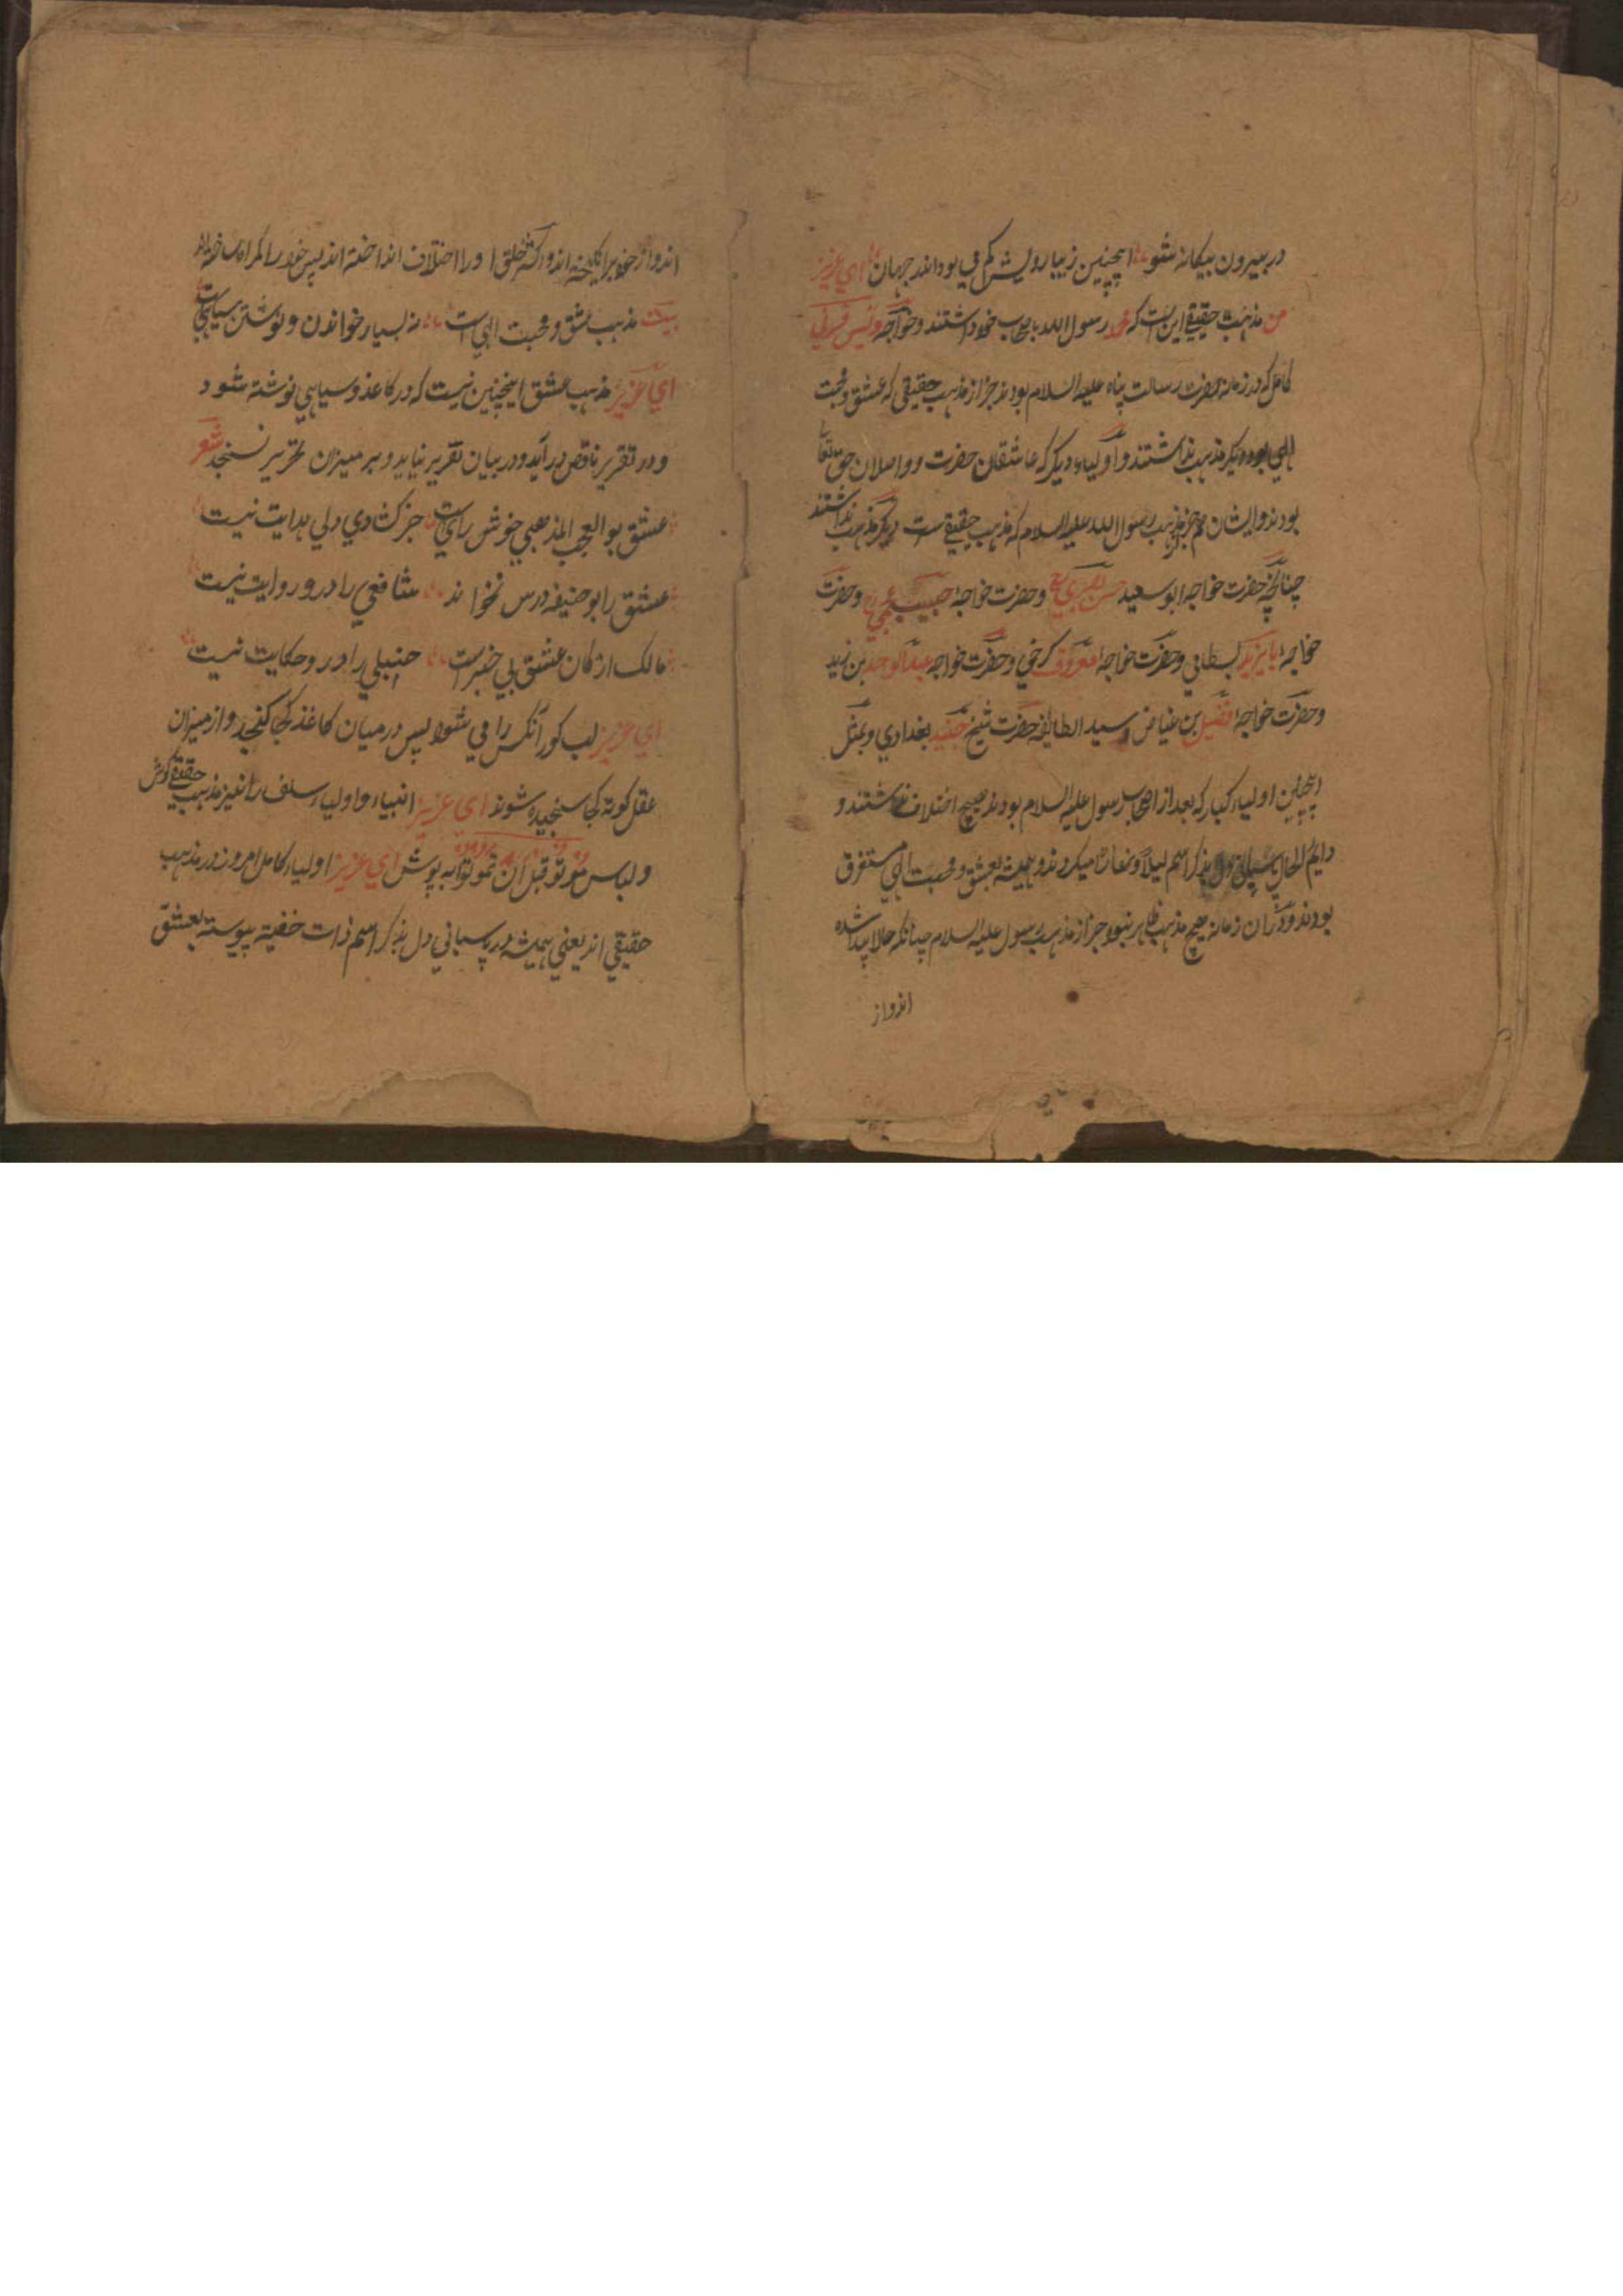 در بیرون بیکانه شو اینچنین زیبا روش کم می بود اندر جهان ای عزیز
من مذهب حقیقی این است که محمد رسول الله باصحاب خود داشتند و خواجه ویس قرنی
کامل که در زمانه حضرت رسالت پناه علیه السلام بودند جز از مذهب حقیقی که عشق و محبت
الهی بود دیکر مذهب نداشتند و اولیاء دیکر که عاشقان حضرت و واصلان حق تعالی
بودند و ایشان هم جز مذهب رسول الله علیه السلام که مذهب حقیقی ست دیکر مذهب نداشتند
چنانچه حضرت خواجه ابو سعید حسن بصری رح و حضرت خواجه حبیب عجمی رح و حضرت
خواجه بایزید بسطامی و حضرت خواجه معروف کرخی و حضرت خواجه عبد الوحد بن زید
و حضرت خواجه فضیل بن عیاض و سید الطایفه حضرت شیخ جنید بغدادی و بمثل
اینچنین اولیاء کبار که بعد از اصحاب رسول علیه السلام بودند هیچ اختلاف نداشتند و
دایم الحال پاسبانی دل بذکر اسم لیلا و نهارا میکردند و همیشه بعشق و محبت الهی مستغرق
بودند و در آن زمانه هیچ مذهب ظاهر نبود جز از مذهب رسول علیه السلام چنانکه حالا پیدا شده
اند و از
اند و از خود برانکیخته اند و اکثر خلق را در اختلاف انداخته اند پس خود را کمراه ساخته اند
بیت مذهب عشق و محبت الهی است نه بسیار خواندن و نوشتن سیاهی است
ای عزیز مذهب عشق اینچنین نیست که در کاغذ و سیاهی نوشته شود
و در تقریر ناقص در آید و در بیان تقریر نیاید و بر میزان تحریر نسنجد شعر
عشق بو العجب المذهبی خوش رای است جز کشادی دلی هدایت نیست
عشق را بو حنیفه درس نخواند شافعی را درو روایت نیست
مالک ارکان عشق بی خبر است حنبلی را درو حکایت نیست
ای عزیز لب کور آنکس را می شود پس در میان کاغذ کجا کنجد و از میزان
عقل کوته کجا سنجیده شوند ای عزیز انبیاء و اولیاء سلف را نیز مذهب حقیقی کوش
و لباس موتو قبل ان تموتوا به پوش ای عزیز اولیاء کامل امروز در مذهب
حقیقی اند یعنی همیشه در پاسبانی دل بذکر اسم ذات خفیه پیوسته بعشق